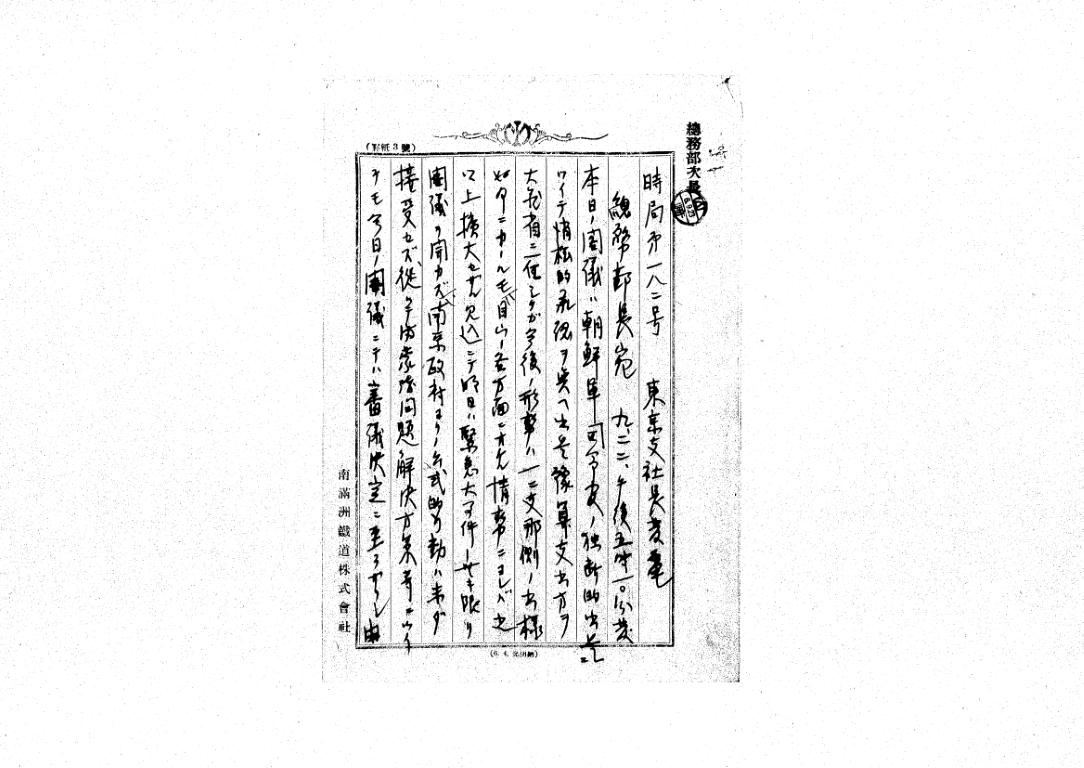 總務部次長
(罫紙3號)
時局第一八二号 東京支社長発電
總務部長宛 九、二二、午後五時一〇分発
本日ノ閣儀ハ朝鮮軍司令官ノ独断的出兵ニ
ツイテ情状的承認ヲ与ヘ出兵豫算支出方ヲ
大蔵省ニ一任シタガ今後ノ形勢ハ一ニ支那側ノ出様
如何ニカールモ目下ノ各方面ニ於ケル情勢ニヨレバ之
以上擴大セサル見込ニテ明日ハ緊急大事件ナキ限リ
閣儀ヲ開カズ南京政府ヨリノ公式的行動ハ未ダ
接受セズ従テ満蒙諸問題解決方策等ニツイ
テモ今日ノ閣儀ニテハ審儀決定ニ至ラザリシ由
南滿洲鐵道株式會社